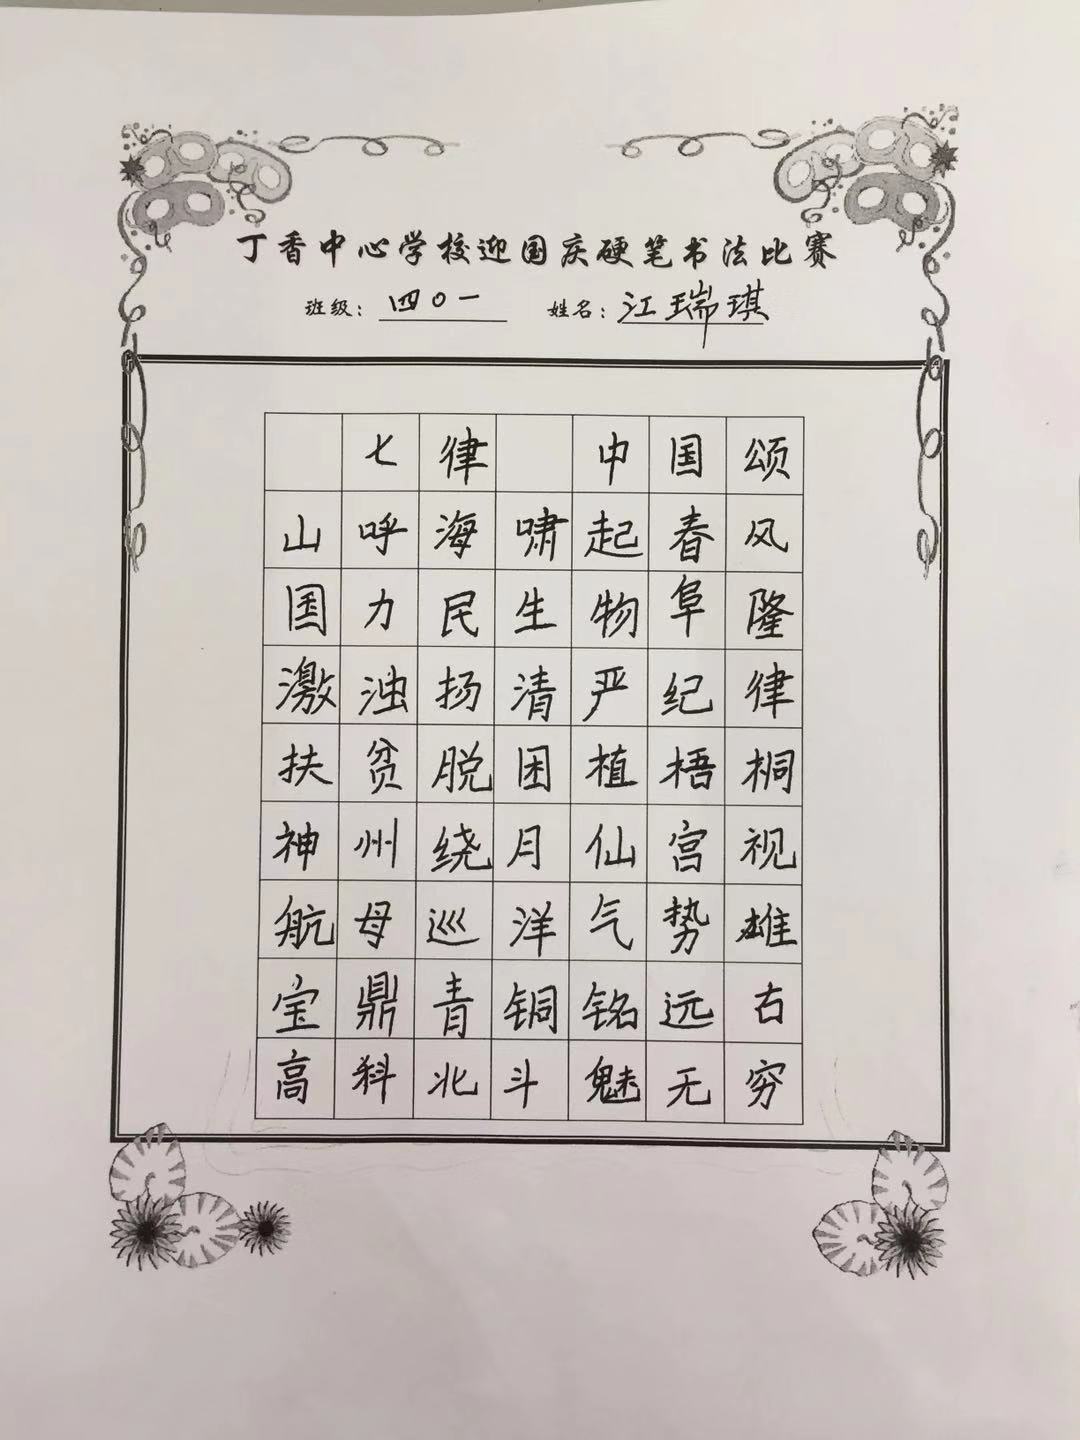 丁香中心学校迎国庆硬笔书法比赛
班级：四〇一 姓名：江瑞琪
七律 中国颂
山呼海啸起春风
国力民生物阜隆
激浊扬清严纪律
扶贫脱困植梧桐
神州绕月仙宫视
航母巡洋气势雄
宝鼎青铜铭远古
高科北斗魅无穷